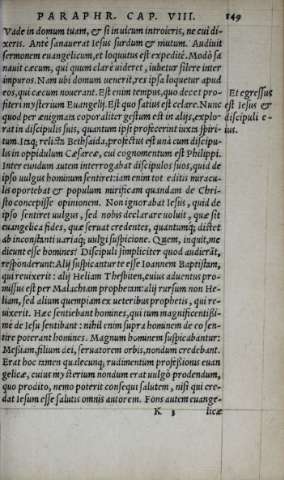 PARAPHR. CAP. VIII. 149
Vade in domum tuam, & si in uicum introieris, ne cui di-
xeris. Ante sanauerat Iesus surdum & mutum. Audiuit
sermonem euangelicum, et loquutus est expedite. Modò sa
nauit cæcum, qui quum clarè uideret, iubetur silere inter
impuros. Nam ubi domum uenerit, res ipsa loquetur apud
eos, qui cæcum nouerant. Est enim tempus, quo decet pro-
fiteri mysterium Euangelij. Est quo satius est celare. Nunc
quod per ænigmata coporaliter gestum est in alijs, explo-
rat in discipulis suis, quantum ipsi profecerint iuxta spiri-
tum. Itaq; relicta Bethsaida, profectus est unà cum discipu-
lis in oppidulum Cæsareæ, cui cognomentum est Philippi.
Inter eundum autem interrogabat discipulos suos, quid de
ipso uulgus hominum sentiret: iam enim tot editis miracu-
lis oportebat & populum mirificam quandam de Chri-
sto concepisse opinionem. Non ignorabat Iesus, quid de
ipso sentiret uulgus, sed nobis declarare uoluit, quæ sit
euangelica fides, quæ seruat credentes, quantumq; distet
ab inconstanti uariaq; uulgi suspicione. Quem, inquit, me
dicunt esse homines? Discipuli simpliciter quod audierãt,
responderunt: Alij suspicantur te esse Ioannem Baptistam,
qui reuixerit: alij Heliam Thesbiten, cuius aduentus pro-
missus est per Malachiam prophetam: alij rursum non He-
liam, sed alium quempiam ex ueteribus prophetis, qui re-
uixerit. Hæc sentiebant homines, qui iam magnificentissi-
me de Iesu sentibant: nihil enim supra hominem de eo sen-
tire poterant homines. Magnum hominem suspicabantur:
Messiam, filium dei, seruatorem orbis, nondum credebant.
Erat hoc tamen qualecunq; rudimentum professionis euan
gelicæ, cuius mysterium nondum erat uulgò prodendum,
quo prodito, nemo poterit consequi salutem, nisi qui cre-
dat Iesum esse salutis omnis autorem. Fons autem euange-
K 3 licæ
Et egressus
est Iesus &
discipuli e-
ius.